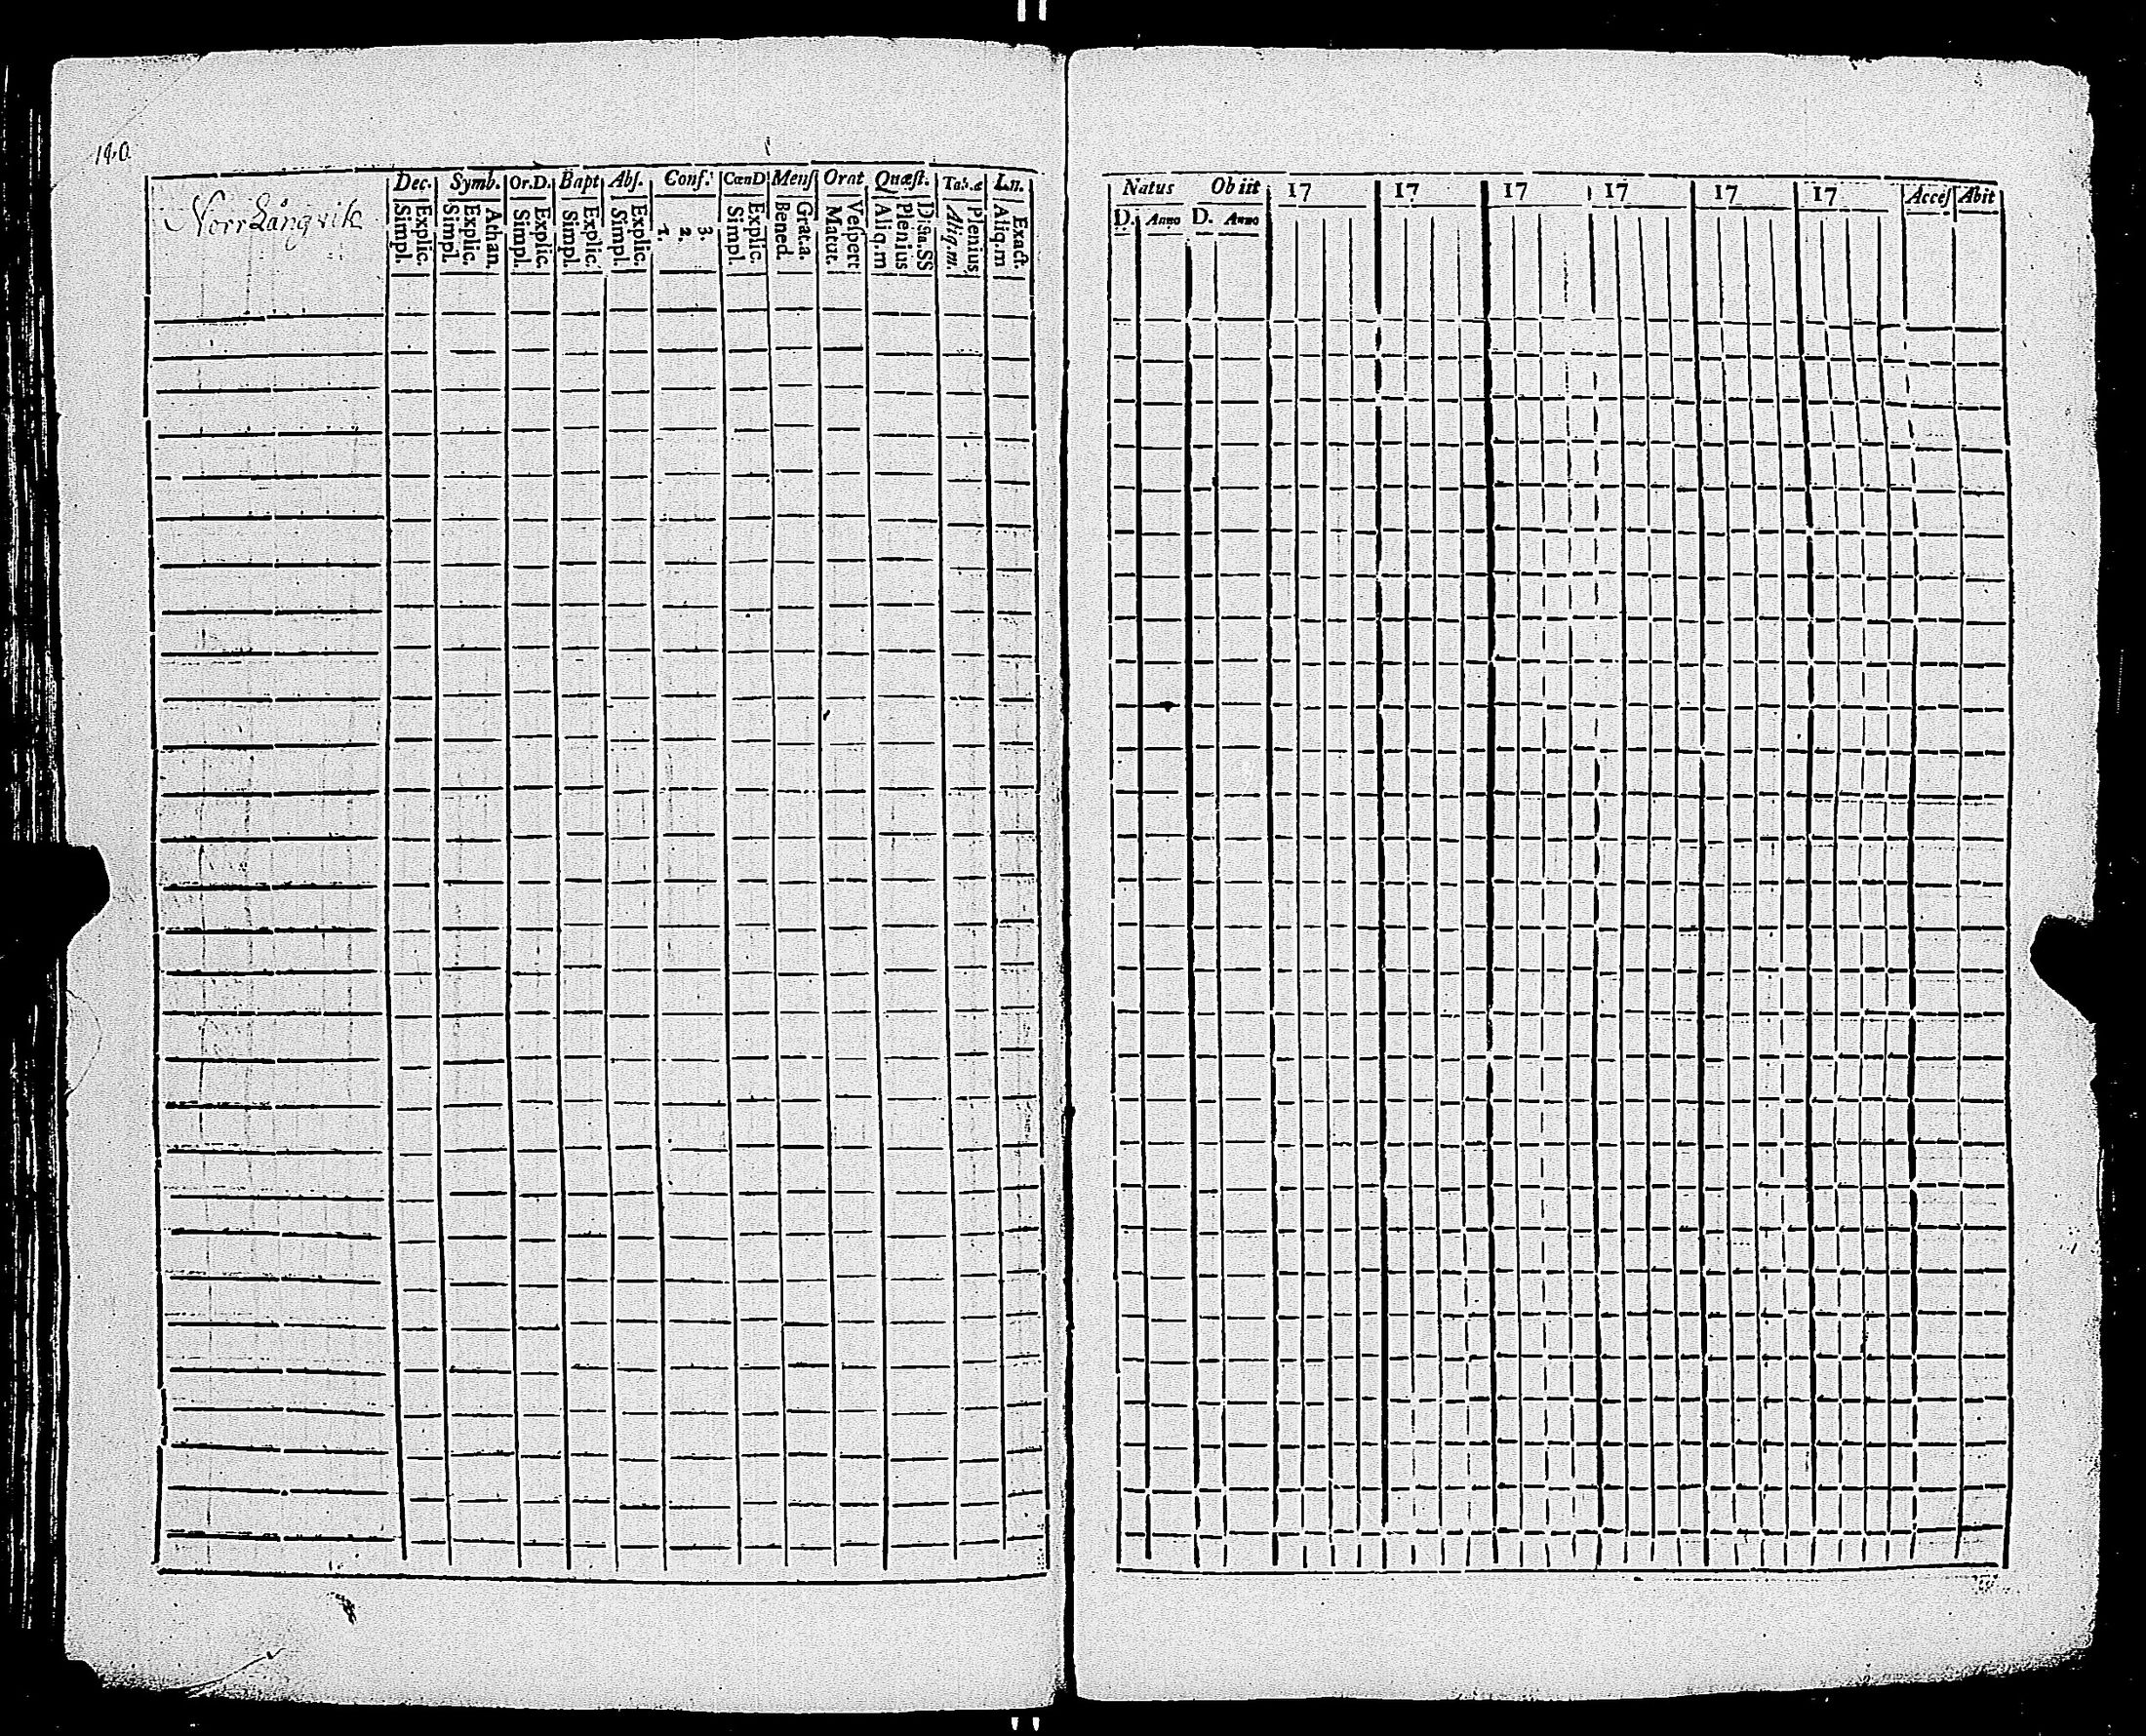 140
Norr Långvik
Dec. Symb. Or.D. Bapt Abs. Conf. CœnD Mens Orat Quæst. Tab.æ L.n.
Explic. Simpl. Athan. Explic. Simpl. Explic. Simpl. Explic. Simpl. Explic. Simpl. 3. 2. 1. Explic. Simpl. Grat.a. Bened. Vespert Matut. D.Sa.SS Plenius Aliq.m Plenius Aliq.m. Exact. Aliq.m
Natus Obiit 17 17 17 17 17 17 Acces Abit
D. Anno D. Anno